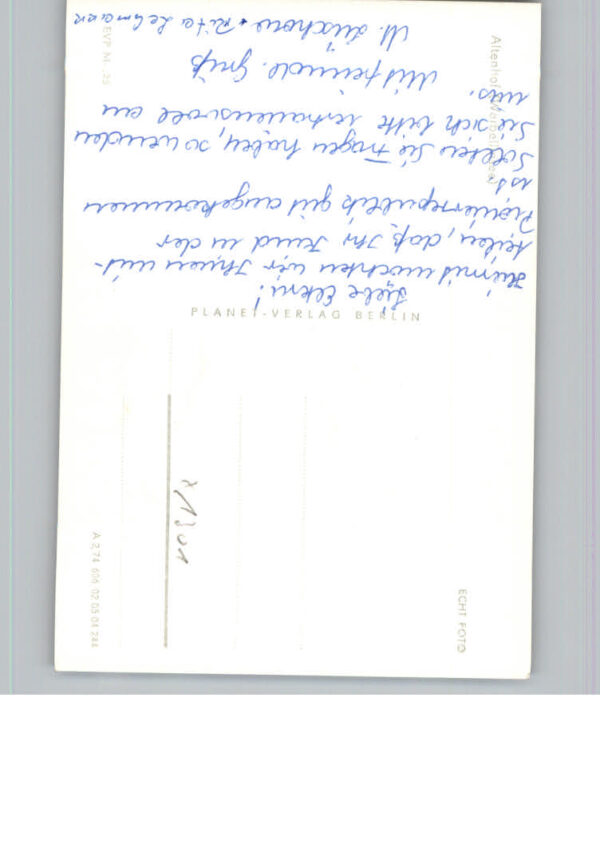 Liebe Eltern!
Hiermit möchten wir Ihnen mit-
teilen, daß Ihr Kind in der
Pionierrepublik gut angekommen
ist.
Sollten Sie Fragen haben, so wenden
Sie sich bitte vertrauensvoll an
uns.
Mit freundl. Gruß
Rita Lehmann
PLANET-VERLAG BERLIN
Altenhof
EVP M -,25
ECHT FOTO
A 2/74 606 02 05 04 244
x1301